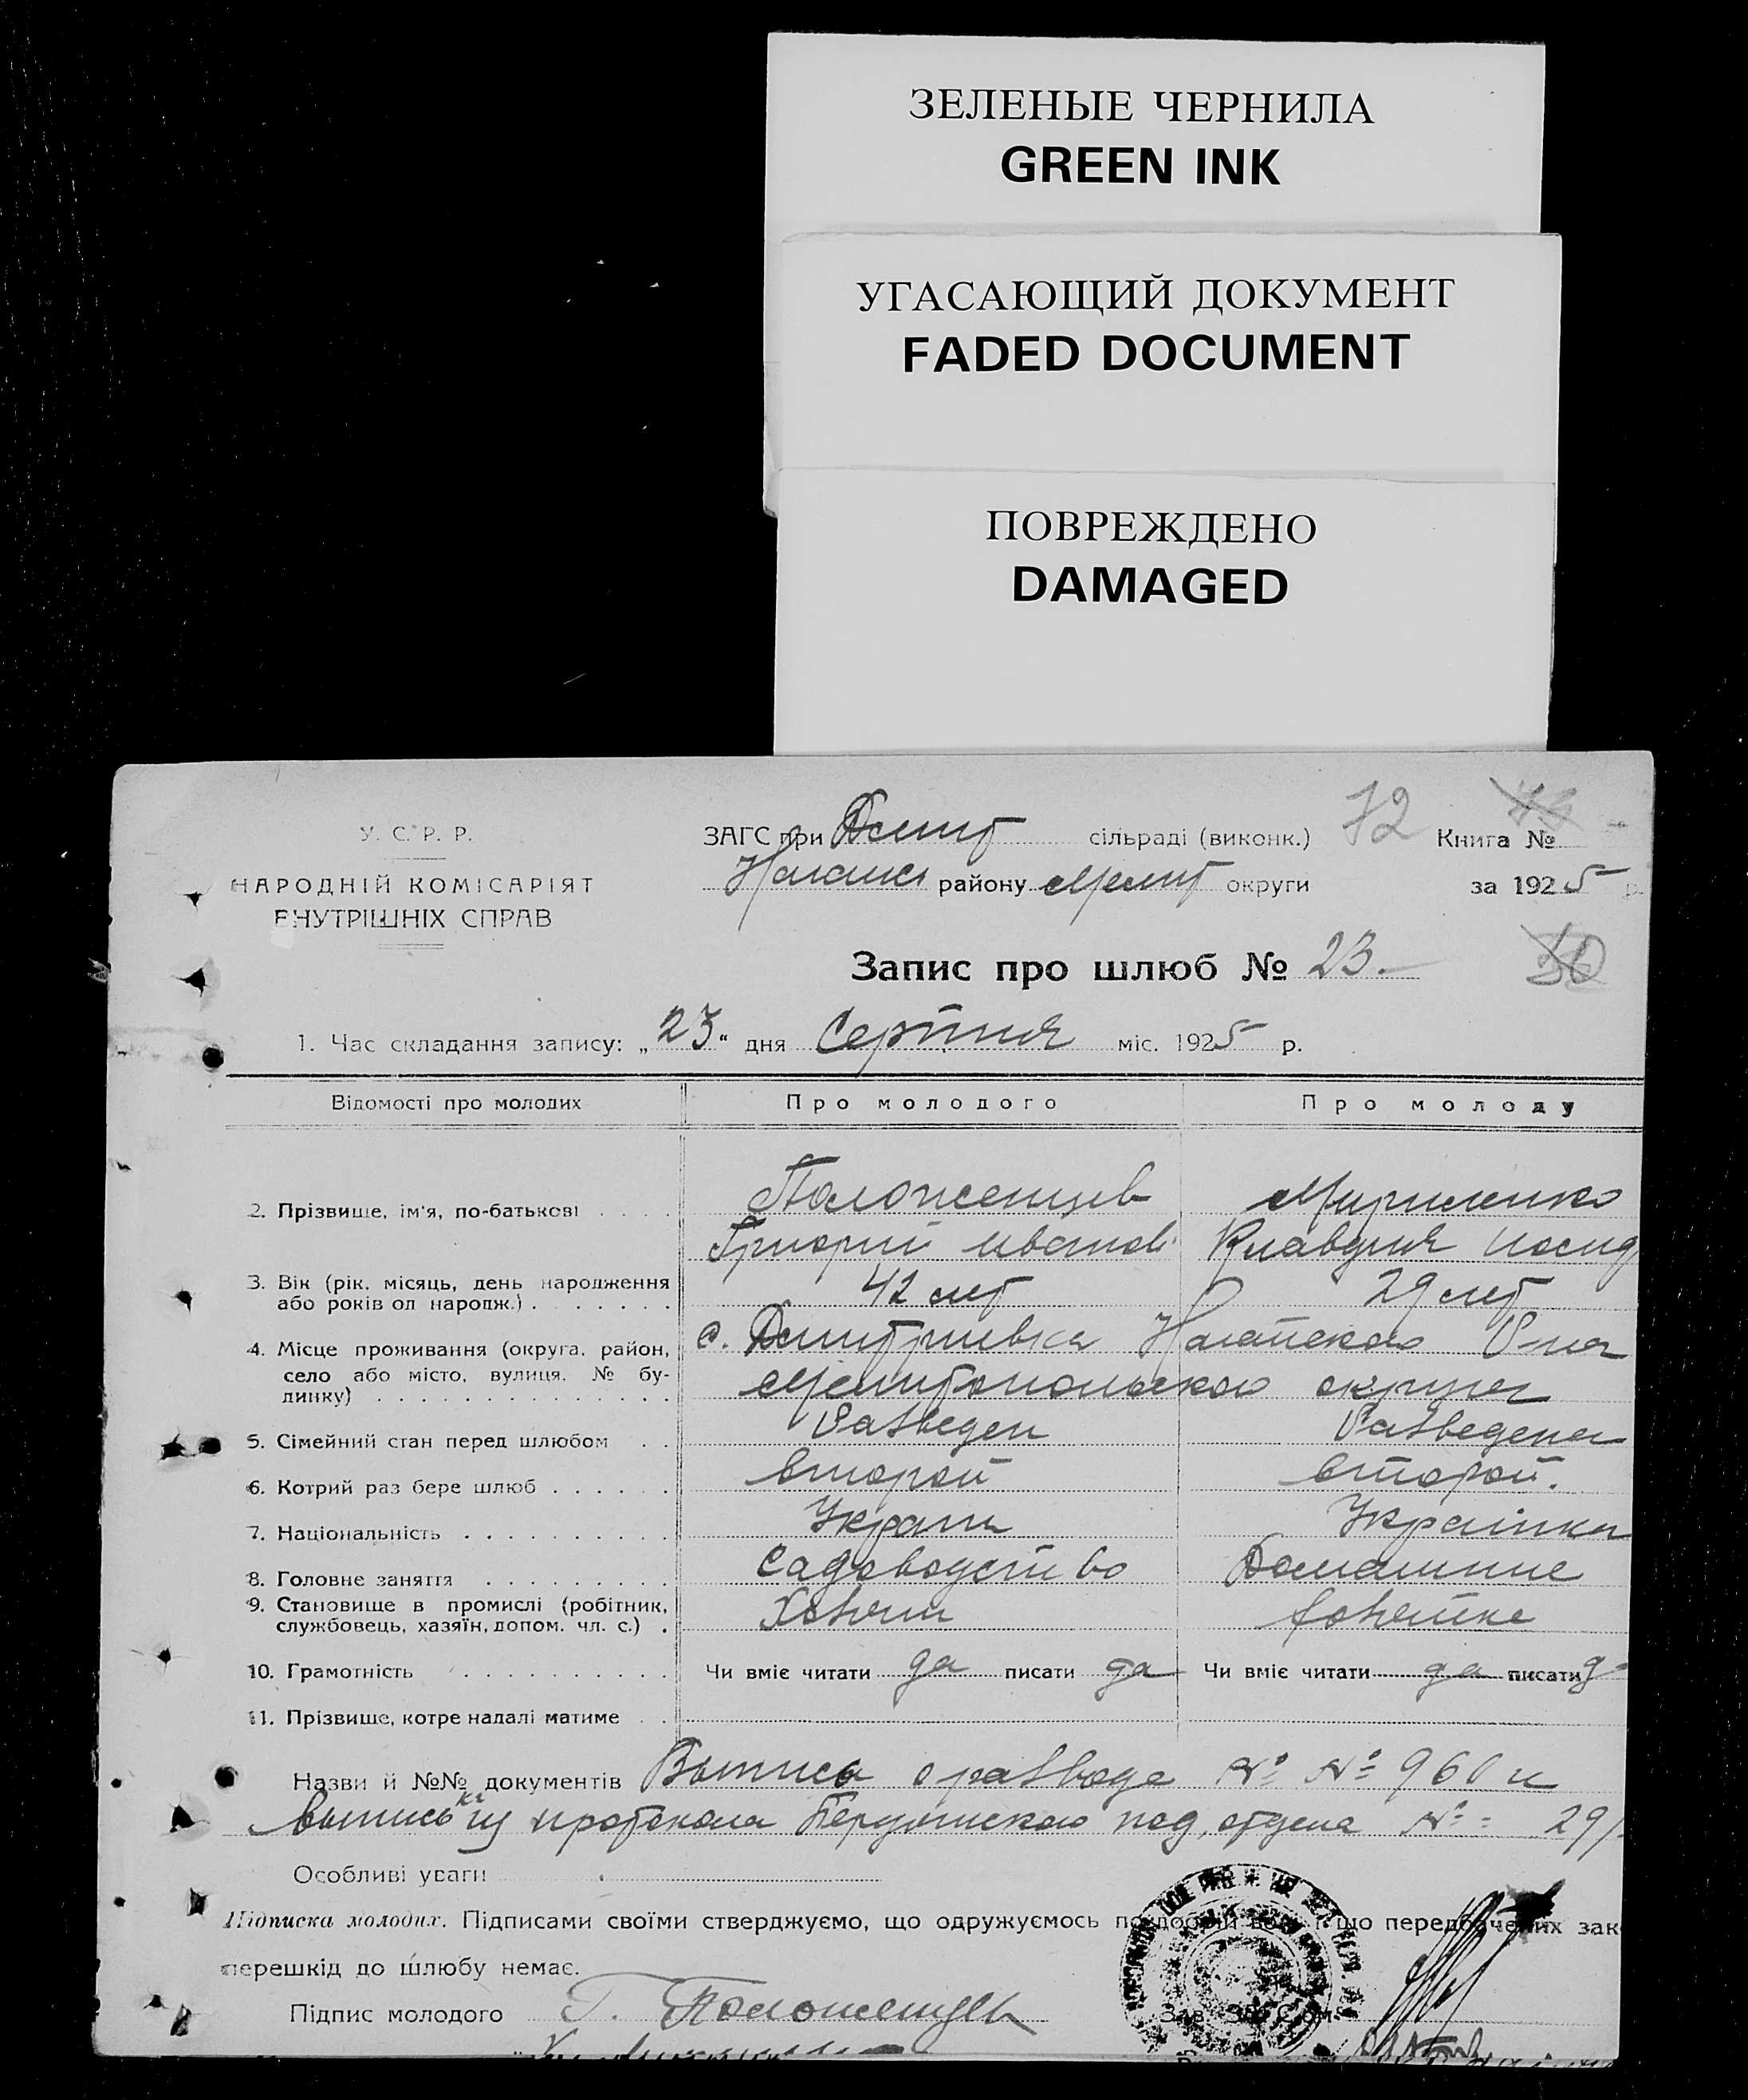 ЗЕЛЕНЫЕ ЧЕРНИЛА
GREEN INK
УГАСАЮЩИЙ ДОКУМЕНТ
FADED DOCUMENT
ПОВРЕЖДЕНО
DAMAGED
У. С. Р. Р.
НАРОДНІЙ КОМІСАРІЯТ
ВНУТРІШНІХ СПРАВ
ЗАГС при Дмит сільраді (виконк.) 72 Книга №
району Мелит округи за 1925 р.
Запис про шлюб № 23.
1. Час складання запису: „23“ дня Серпня міс. 1925 р.
Відомості про молодих Про молодого Про молоду
2. Прізвище, ім'я, по-батькові
Положенцев
Григорий Иванов Клавдия
3. Вік (рік, місяць, день народження або років од народж.) 42 лет 29 лет
4. Місце проживання (округа, район, село або місто, вулиця, № будинку) с. Дмитриевка Р-на
Мелитопольского округи
5. Сімейний стан перед шлюбом Разведен Разведена
6. Котрий раз бере шлюб второй второй.
7. Національність Украин Украінка
8. Головне заняття Садоводство Домашние
9. Становище в промислі (робітник, службовець, хазяїн, допом. чл. с.)
10. Грамотність Чи вміє читати да писати да Чи вміє читати да писати д
11. Прізвище, котре надалі матиме
Назви й №№ документів Выпись о разводе № № 960 и
выпись из протокола под, отдела № 29
Особливі уваги
Підписка молодих. Підписами своїми стверджуємо, що одружуємось по добрій волі і що передбачених зак
перешкід до шлюбу немає.
Підпис молодого Г. Положенцев
Зав. ЗАГС'ом